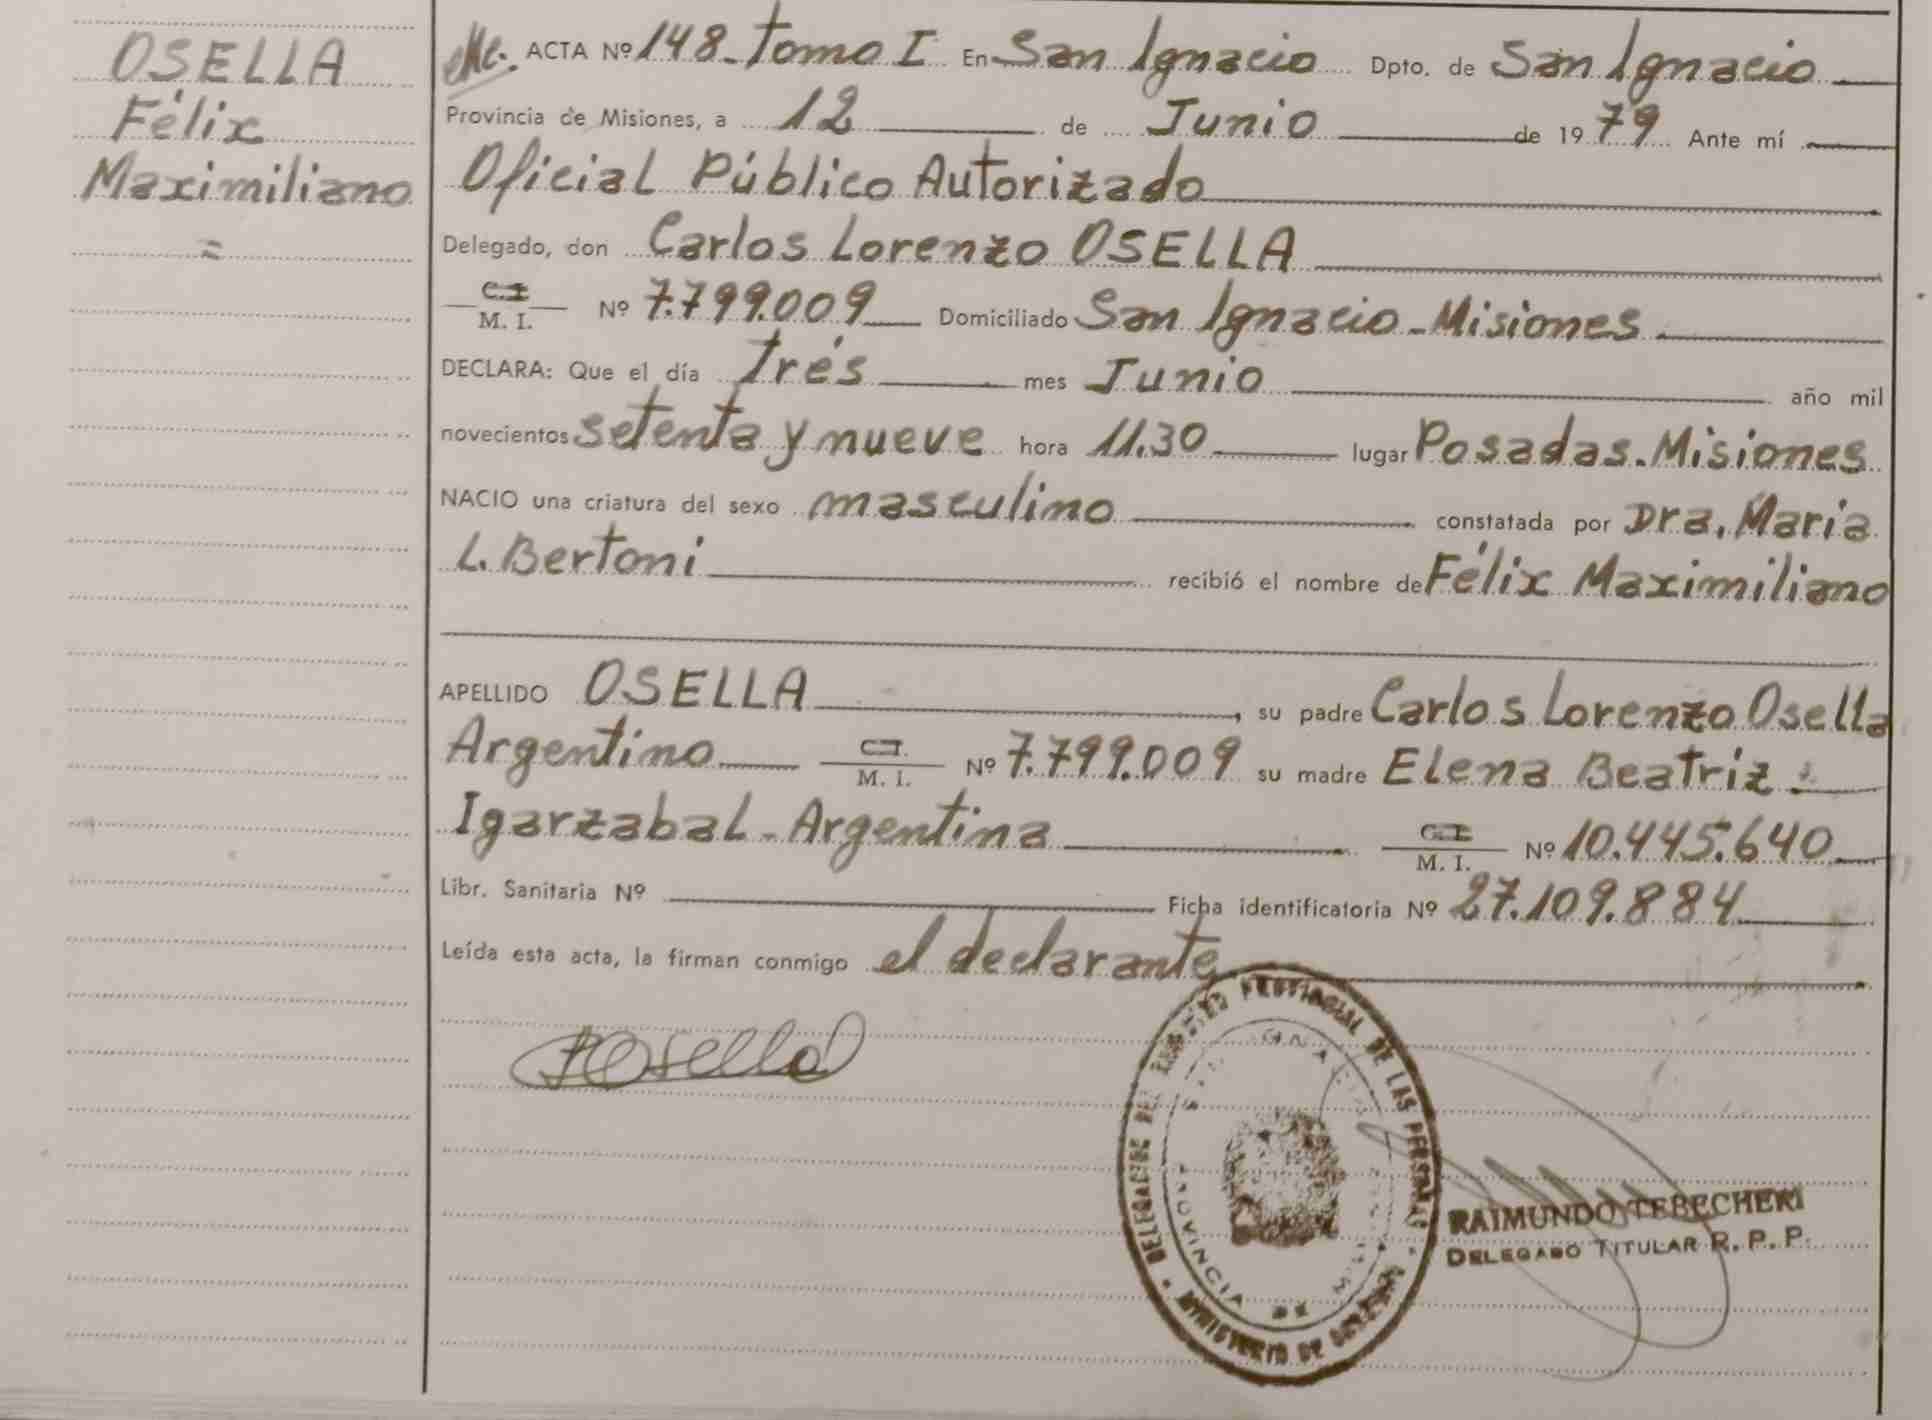 OSELLA
Félix
Maximiliano
=
ACTA Nº 148 - Tomo I En San Ignacio Dpto. de San Ignacio
Provincia de Misiones, a 12 de Junio de 1979 Ante mí
Oficial Público Autorizado
Delegado, don Carlos Lorenzo OSELLA
C.I.
M. I. Nº 7.799.009 Domiciliado San Ignacio - Misiones
DECLARA: Que el día Trés mes Junio año mil
novecientos setenta y nueve hora 11.30 lugar Posadas. Misiones
NACIO una criatura del sexo masculino constatada por Dra. Maria
L. Bertoni recibió el nombre de Félix Maximiliano
APELLIDO OSELLA, su padre Carlos Lorenzo Osella
Argentino C.I.
M. I. Nº 7.799.009 su madre Elena Beatriz
Igarzabal - Argentina C.I.
M. I. Nº 10.445.640
Libr. Sanitaria Nº Ficha identificatoria Nº 27.109.884
Leída esta acta, la firman conmigo el declarante
Osella
DELEGACION DEL REGISTRO PROVINCIAL DE LAS PERSONAS
MINISTERIO DE GOBIERNO
PROVINCIA DE
RAIMUNDO TEBECHERI
DELEGADO TITULAR R. P. P.